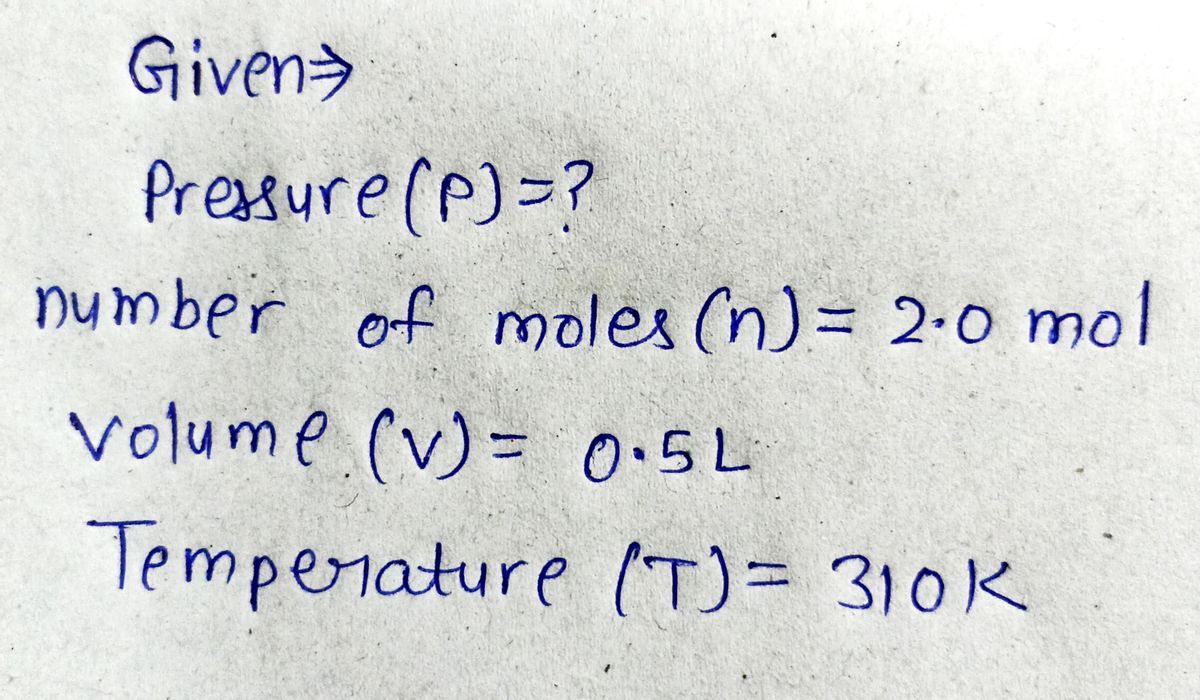 Given⇒
Pressure(P)=?
number of moles(n)= 2.0 mol
volume (v)= 0.5L
Temperature (T)= 310K